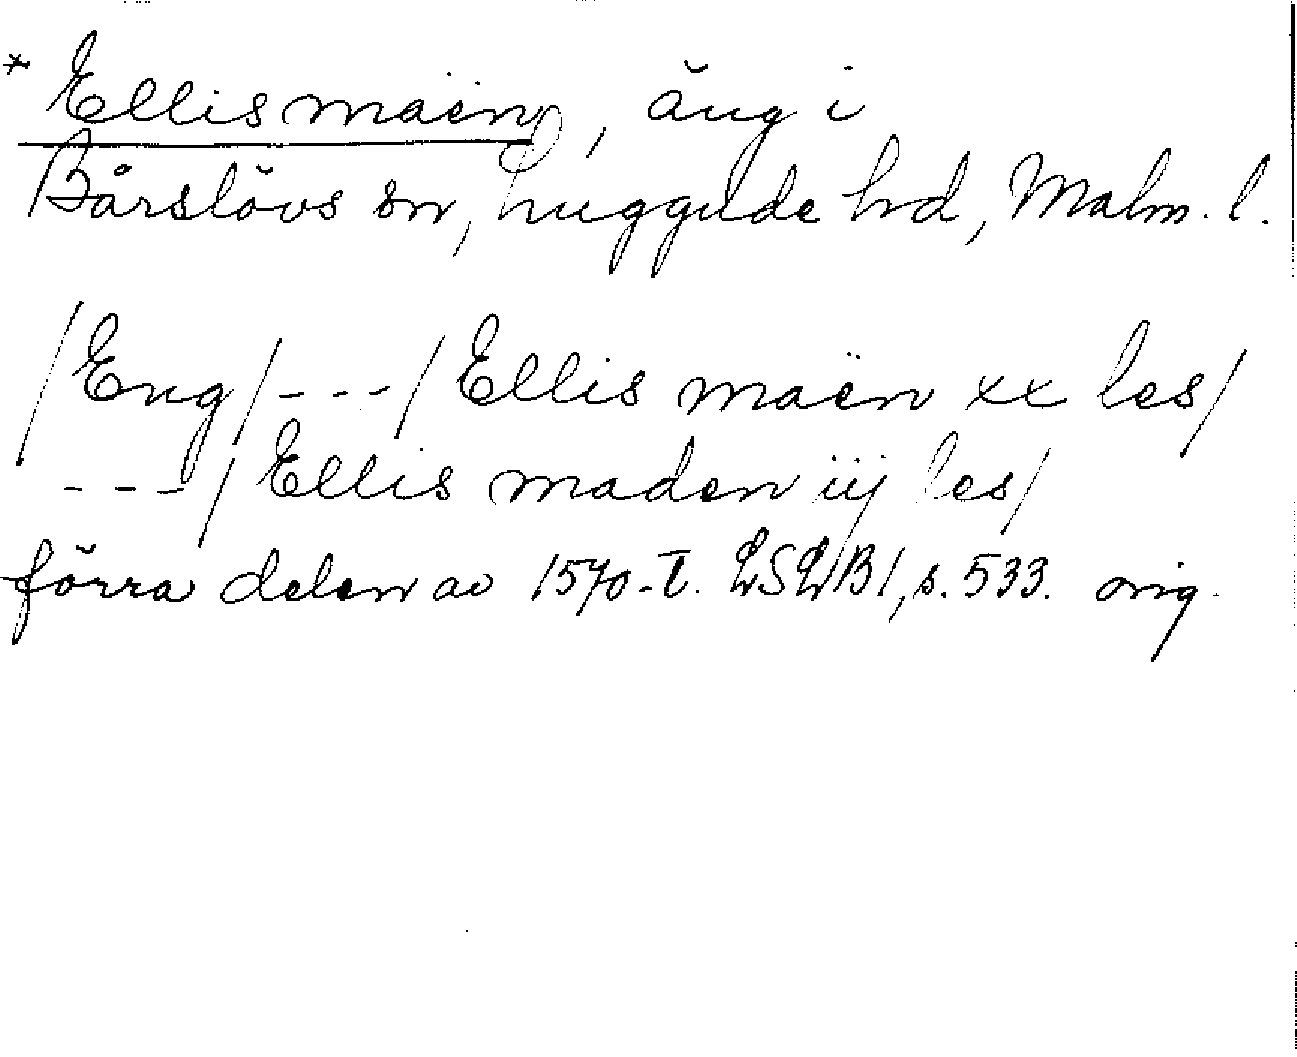 * Ellismaën, äng i
Bårslövs sn, Luggude hd, Malm. l.
/Eng/---/Ellis maën xx les/
---/Ellis maden iij les/
förra delen av 1570-t. LSLB 1, s. 533. orig.